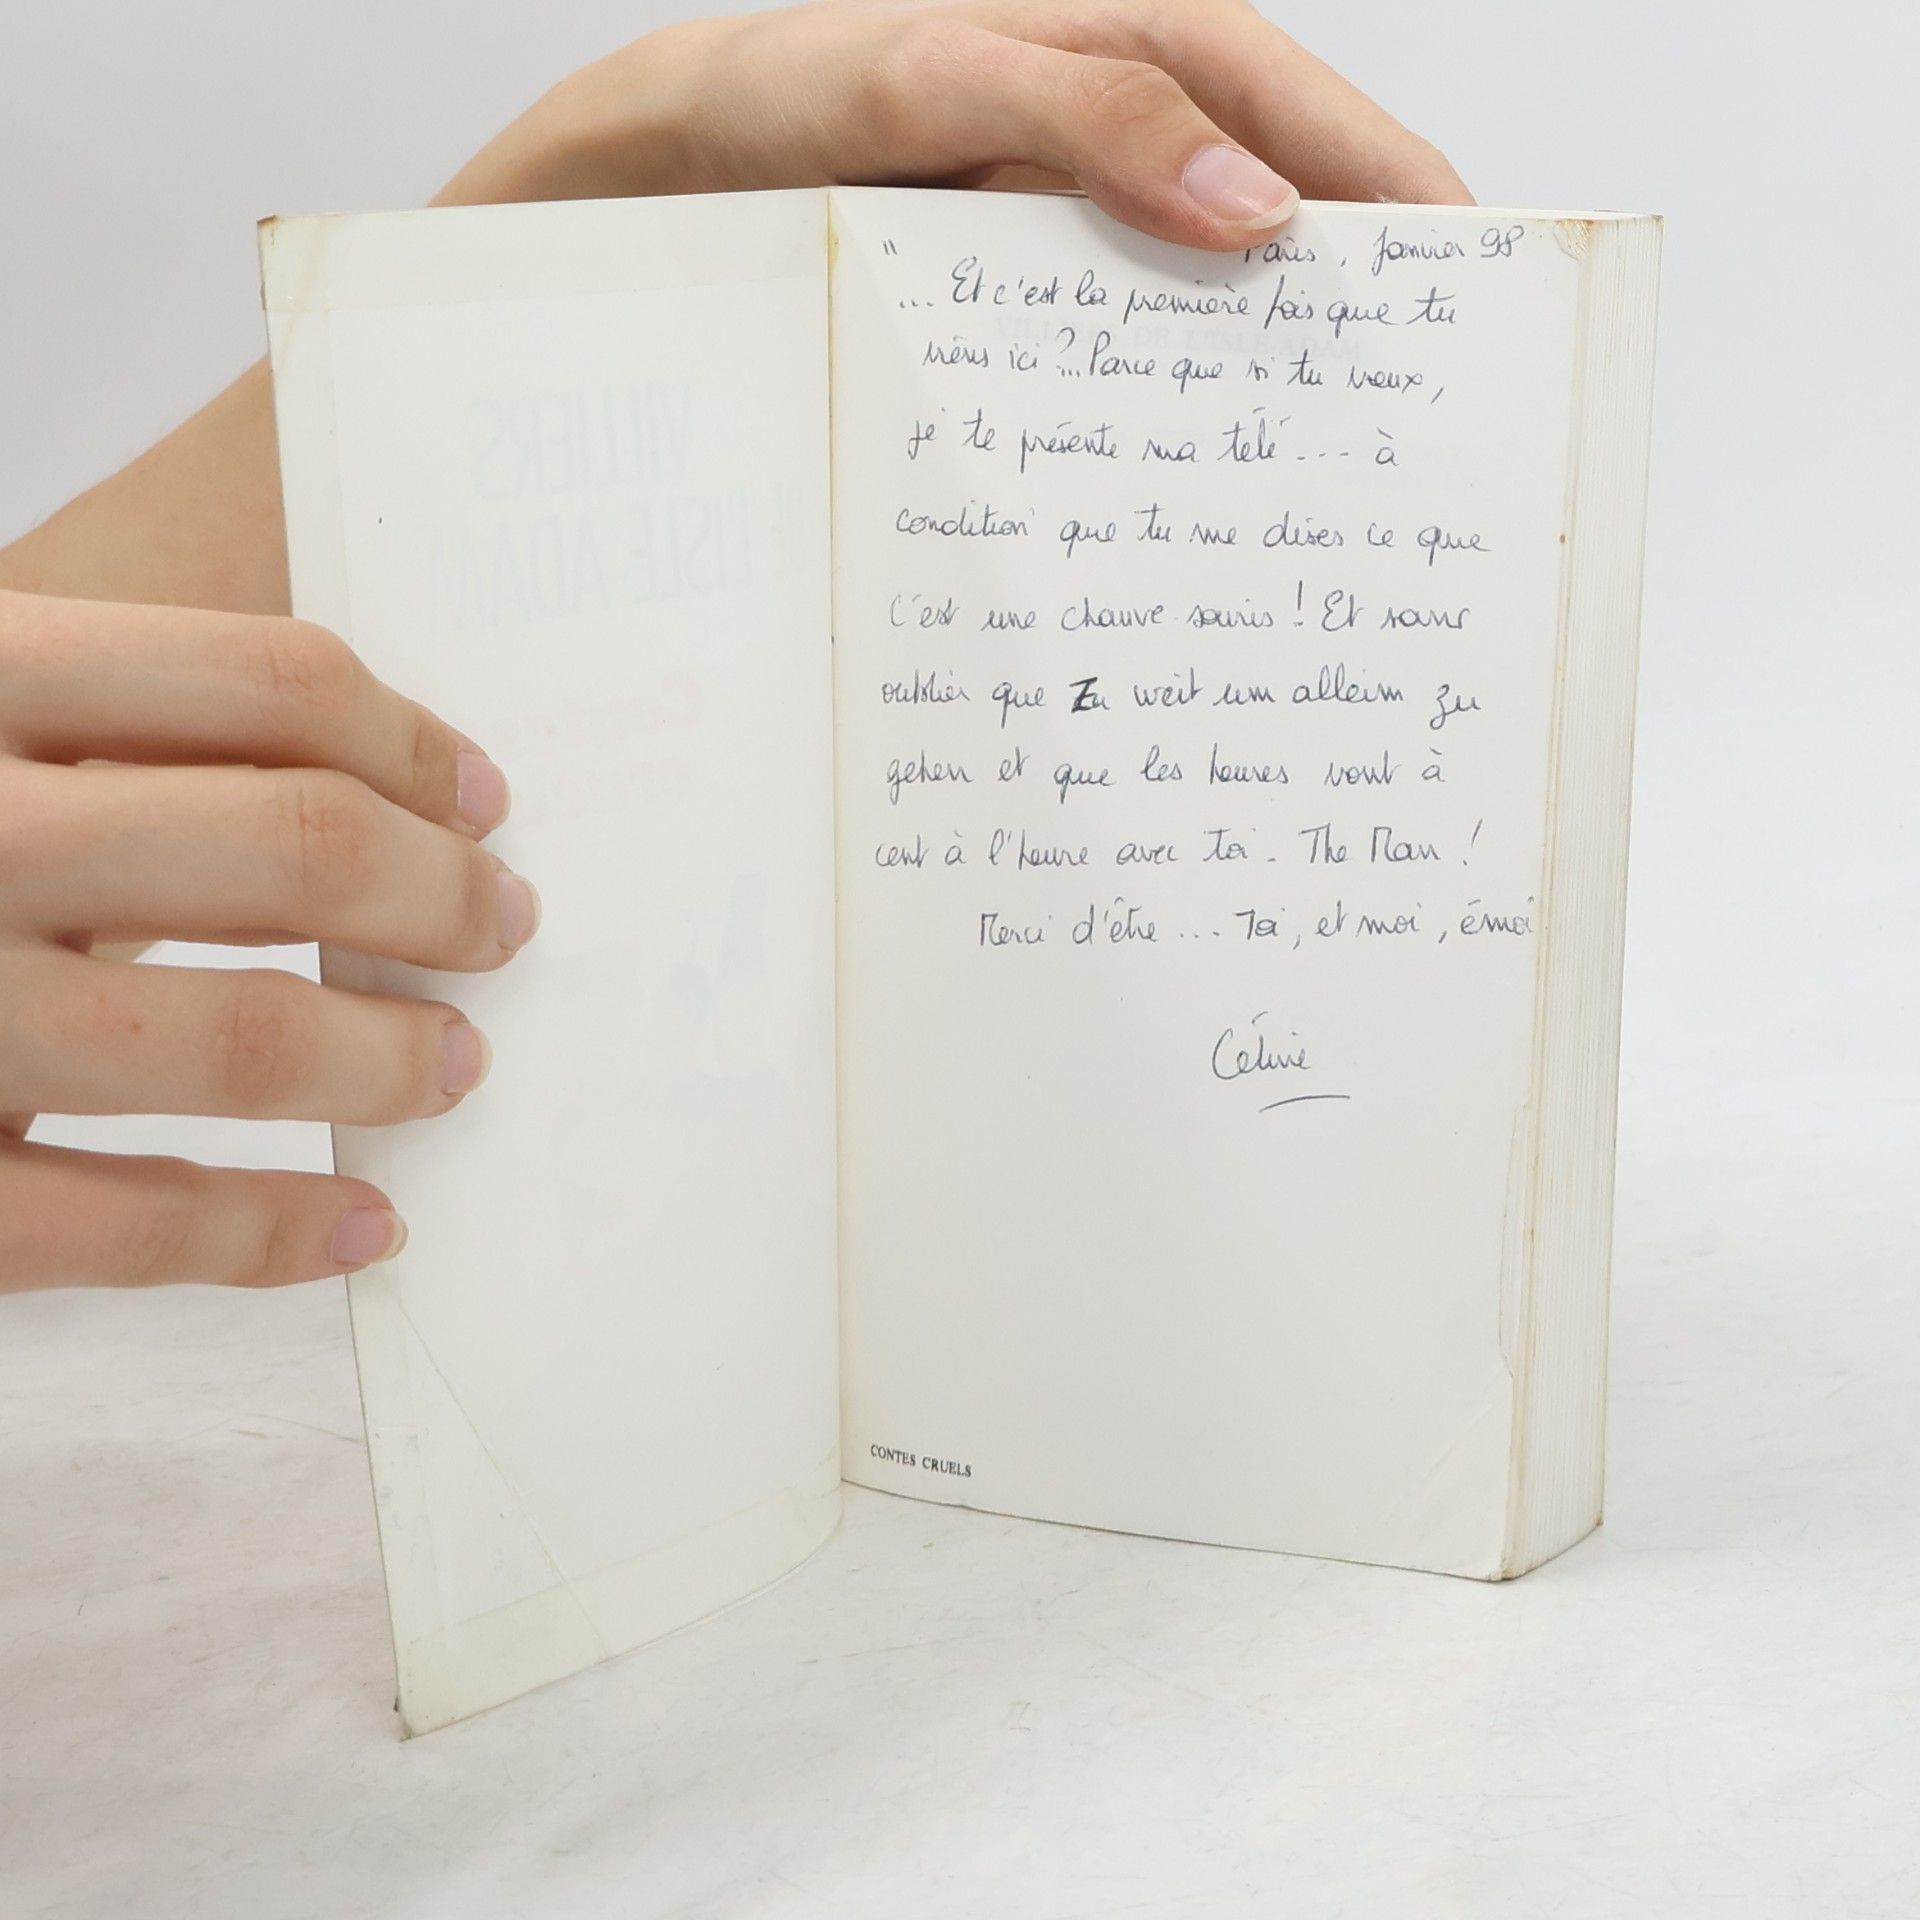 Paris, Janvier 98
"
... Et c'est la première fois que tu
viens ici ?... Parce que si tu veux,
je te présente ma télé --- à
condition que tu me dises ce que
c'est une chauve souris ! Et sans
oublier que Zu weit um allein zu
gehen et que les heures vont à
cent à l'heure avec toi - The Man !
Merci d'être ... Toi, et moi, émoi
Céline
VILLIERS DE L'ISLE-ADAM
CONTES CRUELS
VILLIERS
DE L'ISLE-ADAM